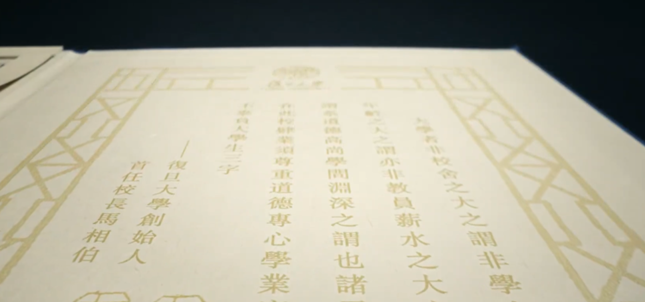 復旦大學
大學者非校舍之大之謂非學
年齡之大之謂亦非教員薪水之大
道德高尚學問淵深之謂也諸
在此校肄業須尊重道德專心學業
不辜負大學生三字
—復旦大學創始人
首任校長馬相伯